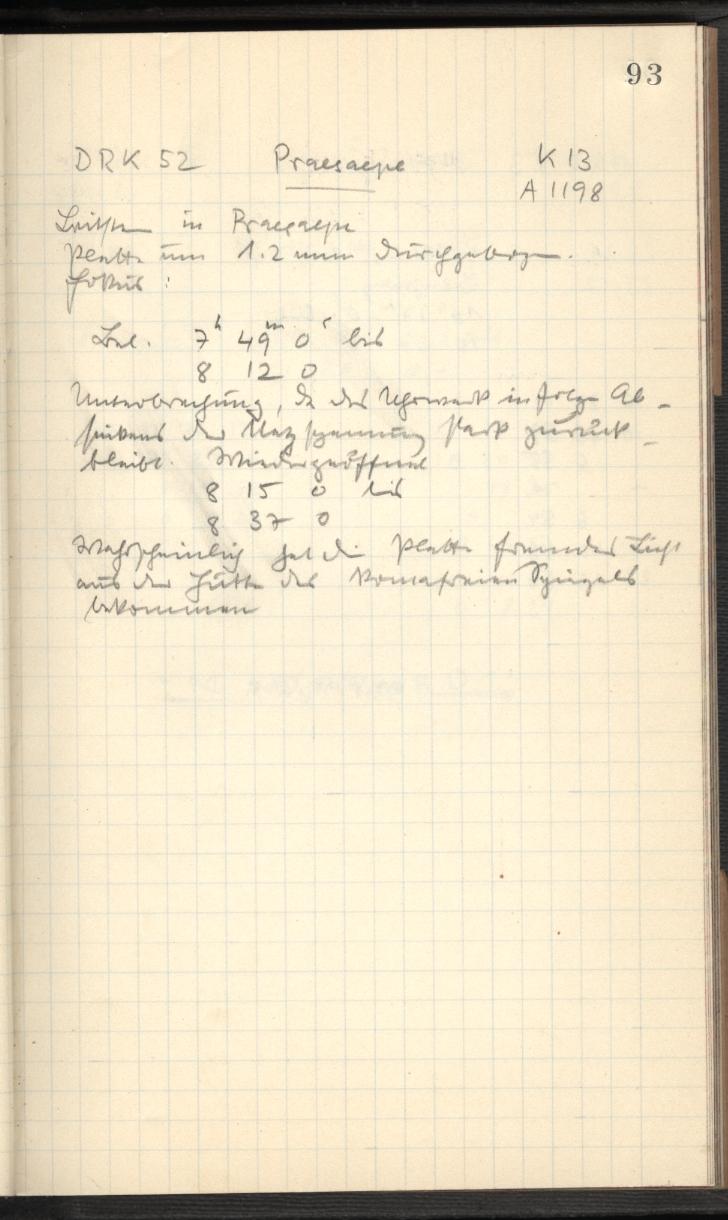 93
DRK 52 Praesaepe K 13
A 1198
Leitstern in Praesaepe
Platte um 1.2 mm durchgebogen.
Fokus :
Bel. 7h 49m 0s bis
8 12 0
Unterbrechung, da das Uhrwerk infolge Ab-
sinkens der Netzspannung stark zurück-
bleibt. Wiedergeöffnet
8 15 0 bis
8 37 0
Wahrscheinlich hat die Platte fremdes Licht
aus der Hütte des komafreien Spiegels
bekommen